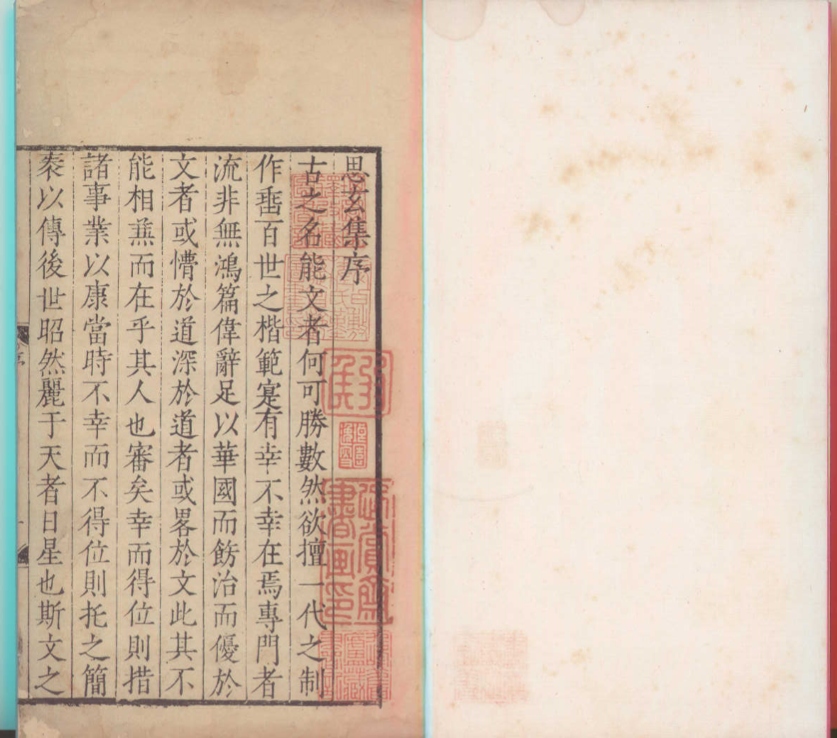 思玄集序
古之名能文者何可勝數然欲擅一代之制
作垂百世之楷範寔有幸不幸在焉專門者
流非無鴻篇偉辭足以華國而飭治而優於
文者或懵於道深於道者或畧於文此其不
能相兼而在乎其人也審矣幸而得位則措
諸事業以康當時不幸而不得位則托之簡
𣐀以傳後世昭然麗于天者日星也斯文之
序